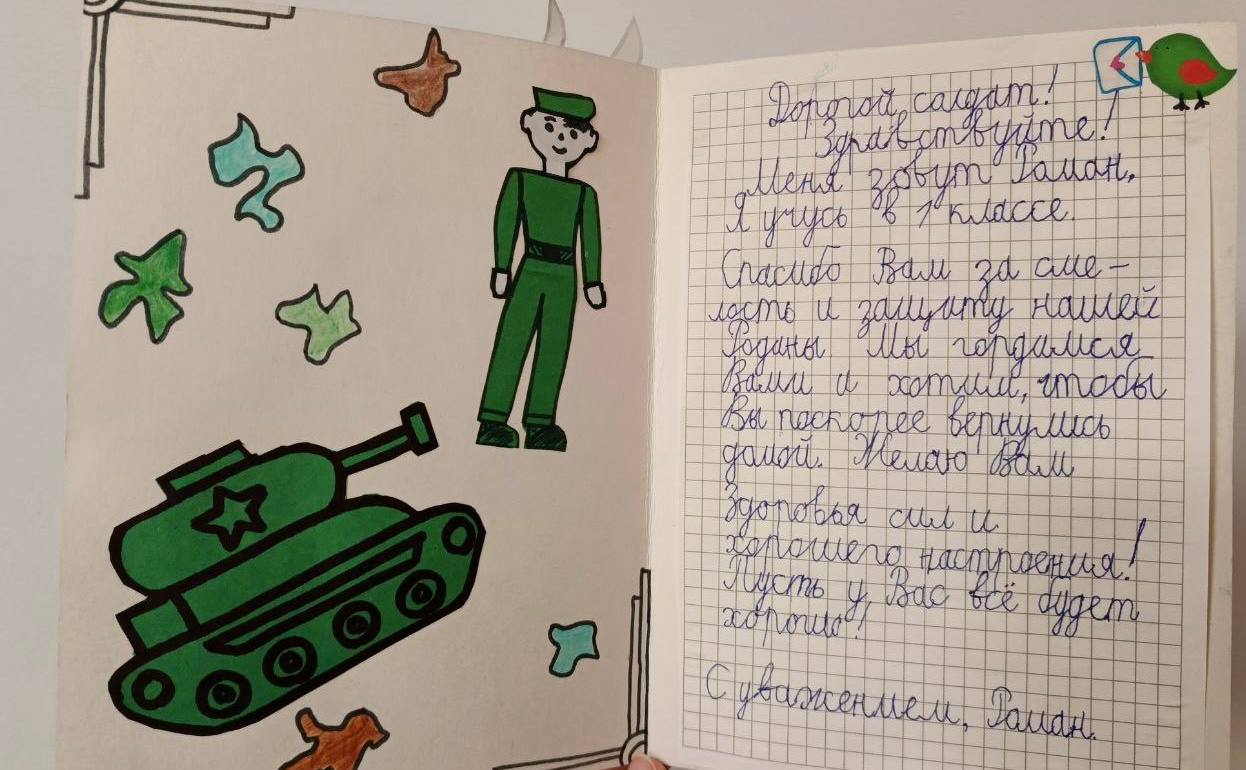 Дорогой солдат!
Здравствуйте!
Меня зовут Раман.
Я учусь в 1 классе.
Спасибо Вам за сме-
лость и защиту нашей
Родины. Мы гордимся
Вами и хотим, чтобы
Вы поскорее вернулись
домой. Желаю Вам
Здоровья сил и
хорошего настроения!
Пусть у Вас всё будет
хорошо!
С уважением, Раман.